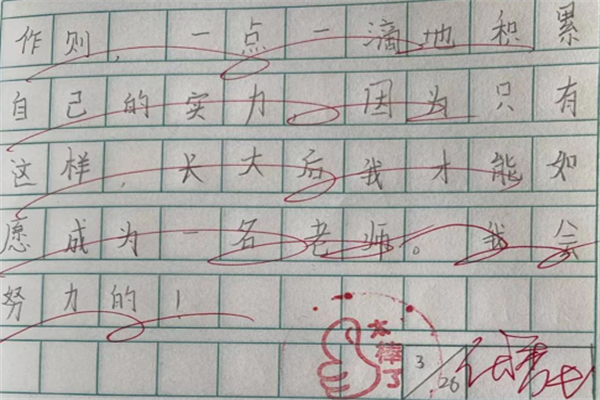 作则，一点一滴地积累
自己的实力，因为只有
这样，长大后我才能如
愿成为一名老师。我会
努力的！
太棒了
3/26